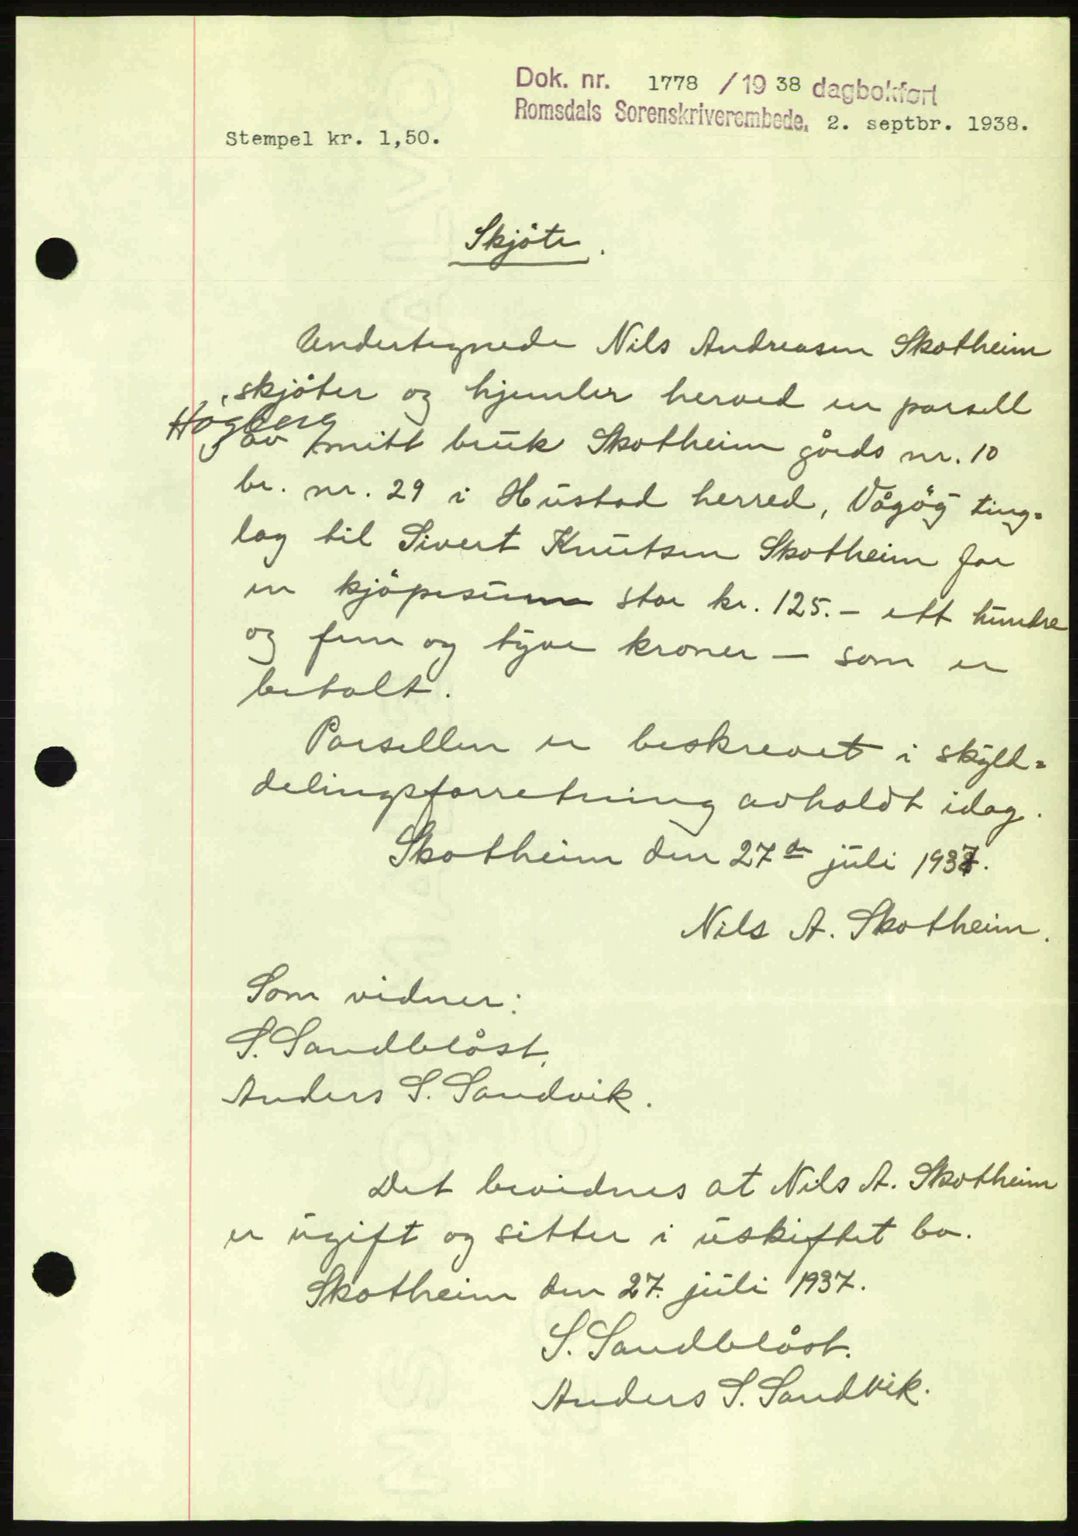 Dok. nr. 1778 / 19 38 dagbokført
Romsdals Sorenskriverembede. 2. septbr. 1938.
Stempel kr. 1,50.
Skjöte.
Undertegnede Nils Andreasen Skotheim
skjöter og hjemler herved en parsell
Hagberg
av mitt bruk Skotheim gårds nr. 10
br. nr. 29 i Hustad herred, Vågöy ting=
lag til Sivert Knutsen Skotheim for
en kjöpesum stor kr. 125.- ett hundre
og fem og tyve kroner - som er
betalt.
Parsellen er beskrevet i skyld=
delingsforretning avholdt idag.
Skotheim den 27de juli 1937.
Nils A. Skotheim.
Som vidner:
S. Sandblåst.
Anders S. Sandvik.
Det bevidnes at Nils A. Skotheim
er ugift og sitter i uskiftet bo.
Skotheim den 27. juli 1937.
S. Sandblåst.
Anders S. Sandvik.